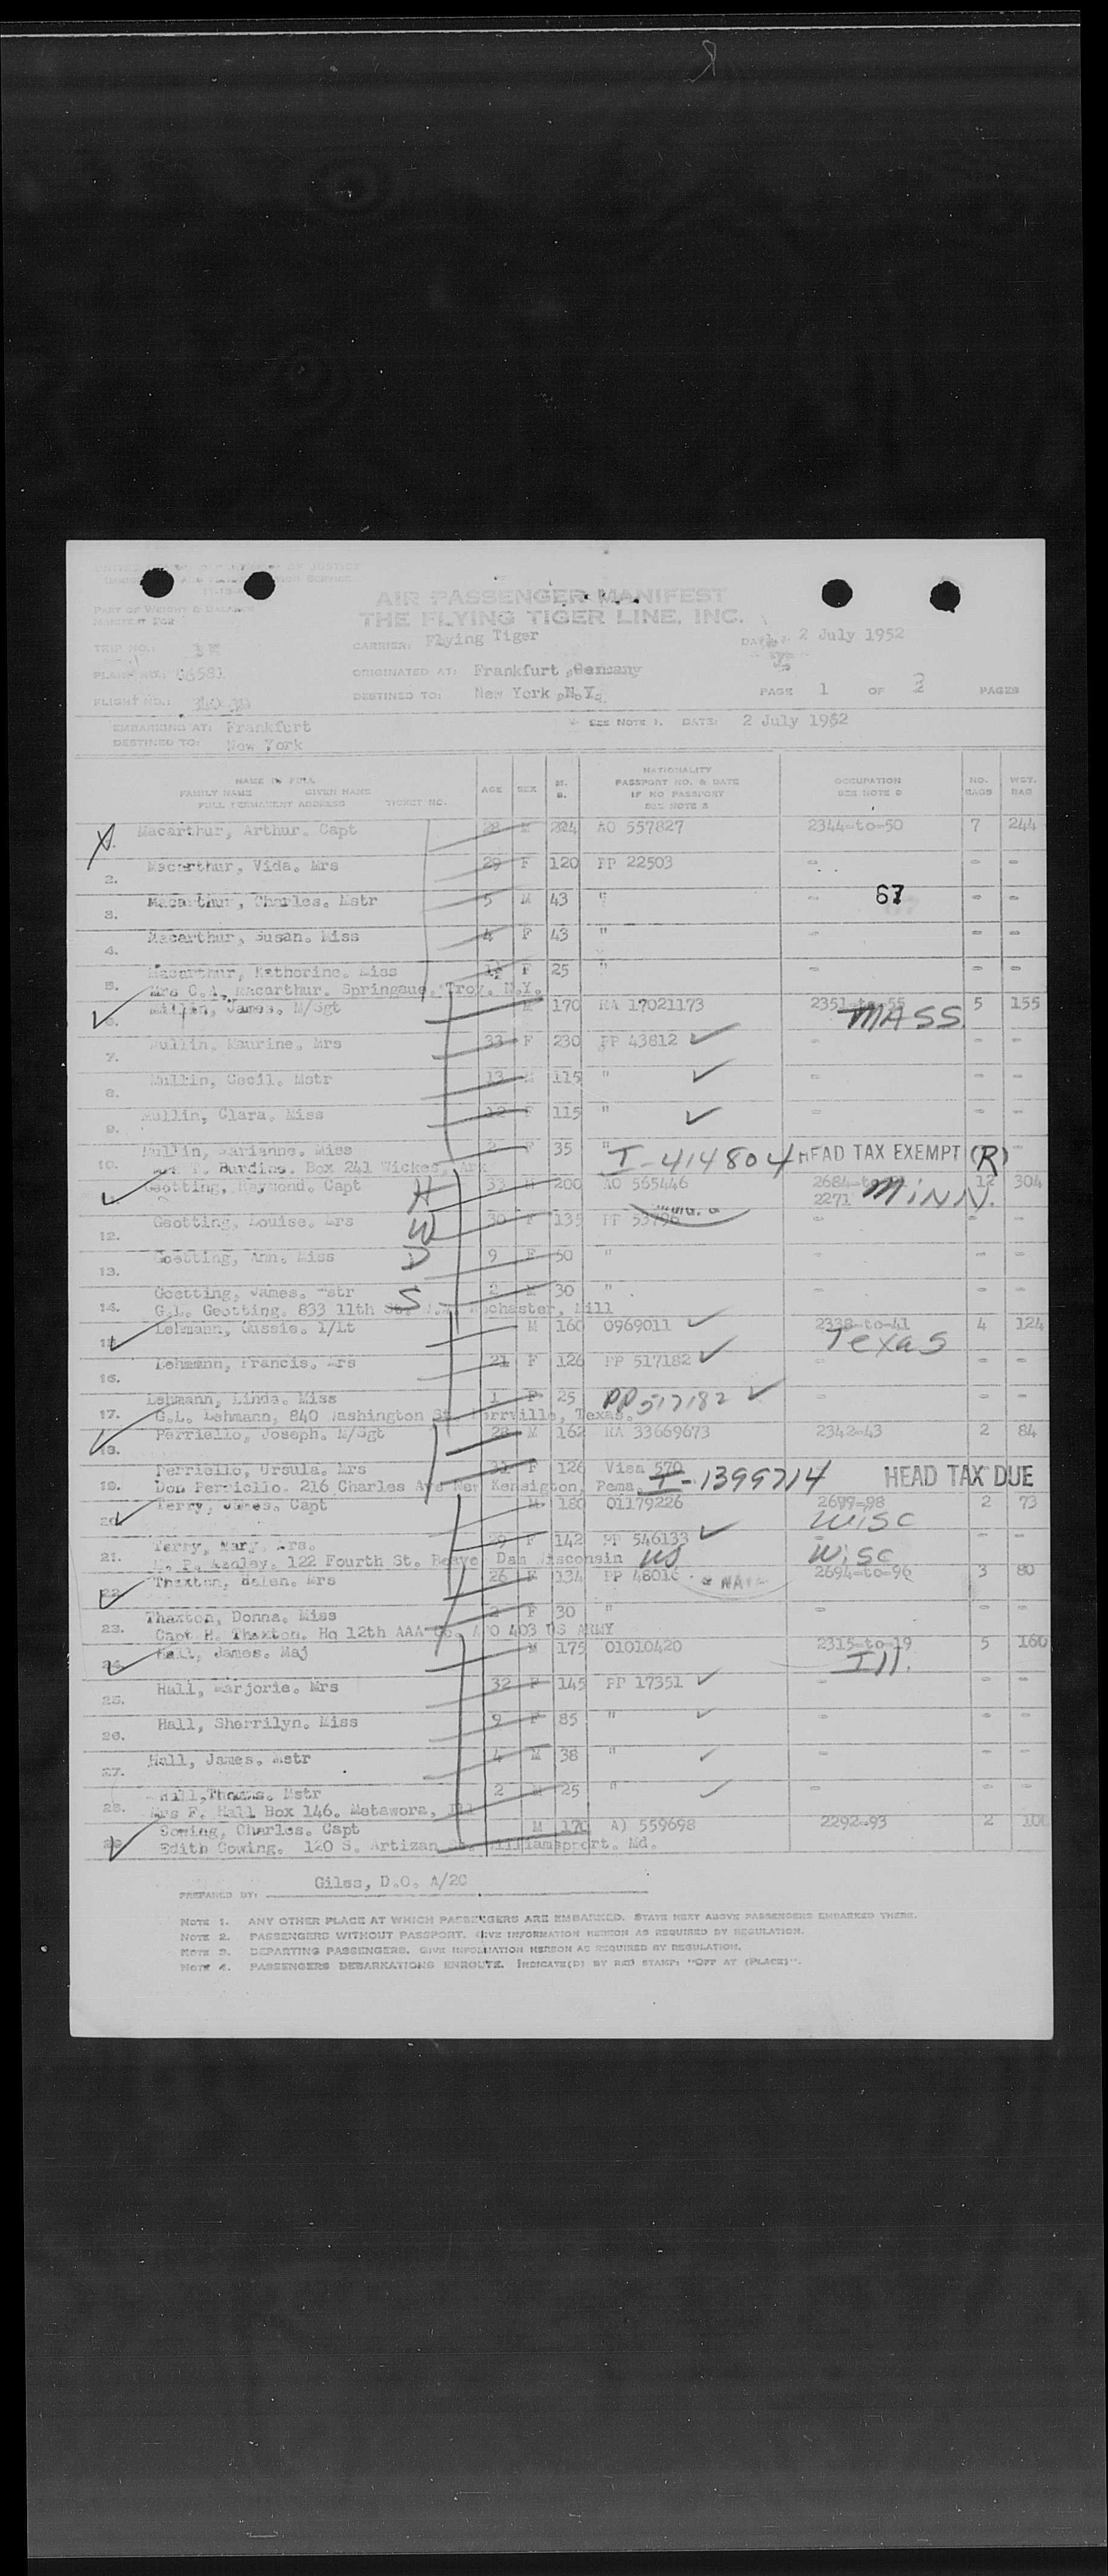 R
UNITED STATES DEPARTMENT OF JUSTICE
PART OF WEIGHT & BALANCE
MANIFEST FOR
AIR PASSENGER MANIFEST
THE FLYING TIGER LINE, INC.
TRIP NO.:
CARRIER: Flying Tiger
DATE: 2 July 1952
PLANE NO.: 66581
ORIGINATED AT: Frankfurt, Germany
FLIGHT NO.:
DESTINED TO: New York, N.Y.
PAGE 1 OF 2 PAGES
EMBARKING AT: Frankfurt
SEE NOTE 1. DATE: 2 July 1952
DESTINED TO: New York
NAME IN FULL
FAMILY NAME GIVEN NAME
FULL PERMANENT ADDRESS TICKET NO.
AGE SEX
NATIONALITY
PASSPORT NO. & DATE
IF NO PASSPORT
SEE NOTE 2
OCCUPATION
SEE NOTE 3
NO. BAGS
WGT. BAG
Macarthur, Arthur. Capt 28 M 224 AO 557827 2344-to-50 7 244
2. Macarthur, Vida. Mrs 29 F 120 PP 22503 - - -
3. Macarthur, Charles. Mstr 5 M 43 " - - -
67
4. Macarthur, Susan. Miss 4 F 43 " - - -
5. Macarthur, Katherine. Miss F 25 " - - -
Mrs C.A. Macarthur. Troy. N.Y.
6. Mullin, James. M/Sgt M 170 RA 17021173 2351-to-55 5 155
MASS
7. Mullin, Maurine. Mrs 33 F 230 PP 43812 - - -
8. Mullin, Cecil. Mstr 13 M 115 " - - -
9. Mullin, Clara. Miss 12 F 115 " - - -
10. Mullin, Marianne. Miss 2 F 35 " I-414804 HEAD TAX EXEMPT (R) -
Burdine. Box 241 Wickes, Ark
Geotting, Raymond. Capt H 33 M 200 AO 565446 2684-to- 12 304
2271 MINN.
12. Geotting, Louise. Mrs W 30 F 135 PP 53796 - - -
13. Goetting, Ann. Miss D 9 F 50 " - - -
14. Goetting, James. Mstr S 2 M 30 " - - -
G.L. Geotting. 833 11th St. Rochester, Mill
Lehmann, Gussie. 1/Lt M 160 0969011 2338-to-41 4 124
Texas
16. Lehmann, Francis. Mrs 21 F 126 PP 517182 - - -
17. Lehmann, Linda. Miss 1 F 25 PP 517182 - - -
G.L. Lehmann, 840 Washington St. Kerrville, Texas.
18. Perriello, Joseph. M/Sgt 28 M 162 RA 33669673 2342-43 2 84
19. Perriello, Ursula. Mrs 31 F 126 Visa 570 I-1399714 HEAD TAX DUE
Don Perriello. 216 Charles Ave New Kensigton, Penna.
20. Terry, James. Capt M 180 01179226 2697-98 2 73
WISC
21. Terry, Mary. Mrs. 29 F 142 PP 546133 - - -
122 Fourth St. Beaver Dam Wisconsin US WISC
22. Thaxton, Helen. Mrs 26 F 134 PP 48016 2694-to-96 3 80
& NAT
23. Thaxton, Donna. Miss 2 F 30 " - - -
Capt H. Thaxton. Hq 12th AAA Gp. APO 403 US ARMY
24. Hall, James. Maj M 175 01010420 2315-to-19 5 160
Ill.
25. Hall, Marjorie. Mrs 32 F 145 PP 17351 - - -
26. Hall, Sherrilyn. Miss 9 F 85 " - - -
27. Hall, James. Mstr 4 M 38 " - - -
28. Hall, Thomas. Mstr 2 M 25 " - - -
Mrs F. Hall Box 146. Metawora, Ill
Gowing, Charles. Capt M 170 A) 559698 2292-93 2
Edith Gowing. 120 S. Artizan St. Williamspport. Md.
PREPARED BY: Giles, D.O. A/2C
NOTE 1. ANY OTHER PLACE AT WHICH PASSENGERS ARE EMBARKED. STATE NEXT ABOVE PASSENGERS EMBARKED THERE.
NOTE 2. PASSENGERS WITHOUT PASSPORT. GIVE INFORMATION HEREON AS REQUIRED BY REGULATION.
NOTE 3. DEPARTING PASSENGERS. GIVE INFORMATION HEREON AS REQUIRED BY REGULATION.
NOTE 4. PASSENGERS DEBARKATIONS ENROUTE. INDICATE(D) BY RED STAMP: "OFF AT (PLACE)".